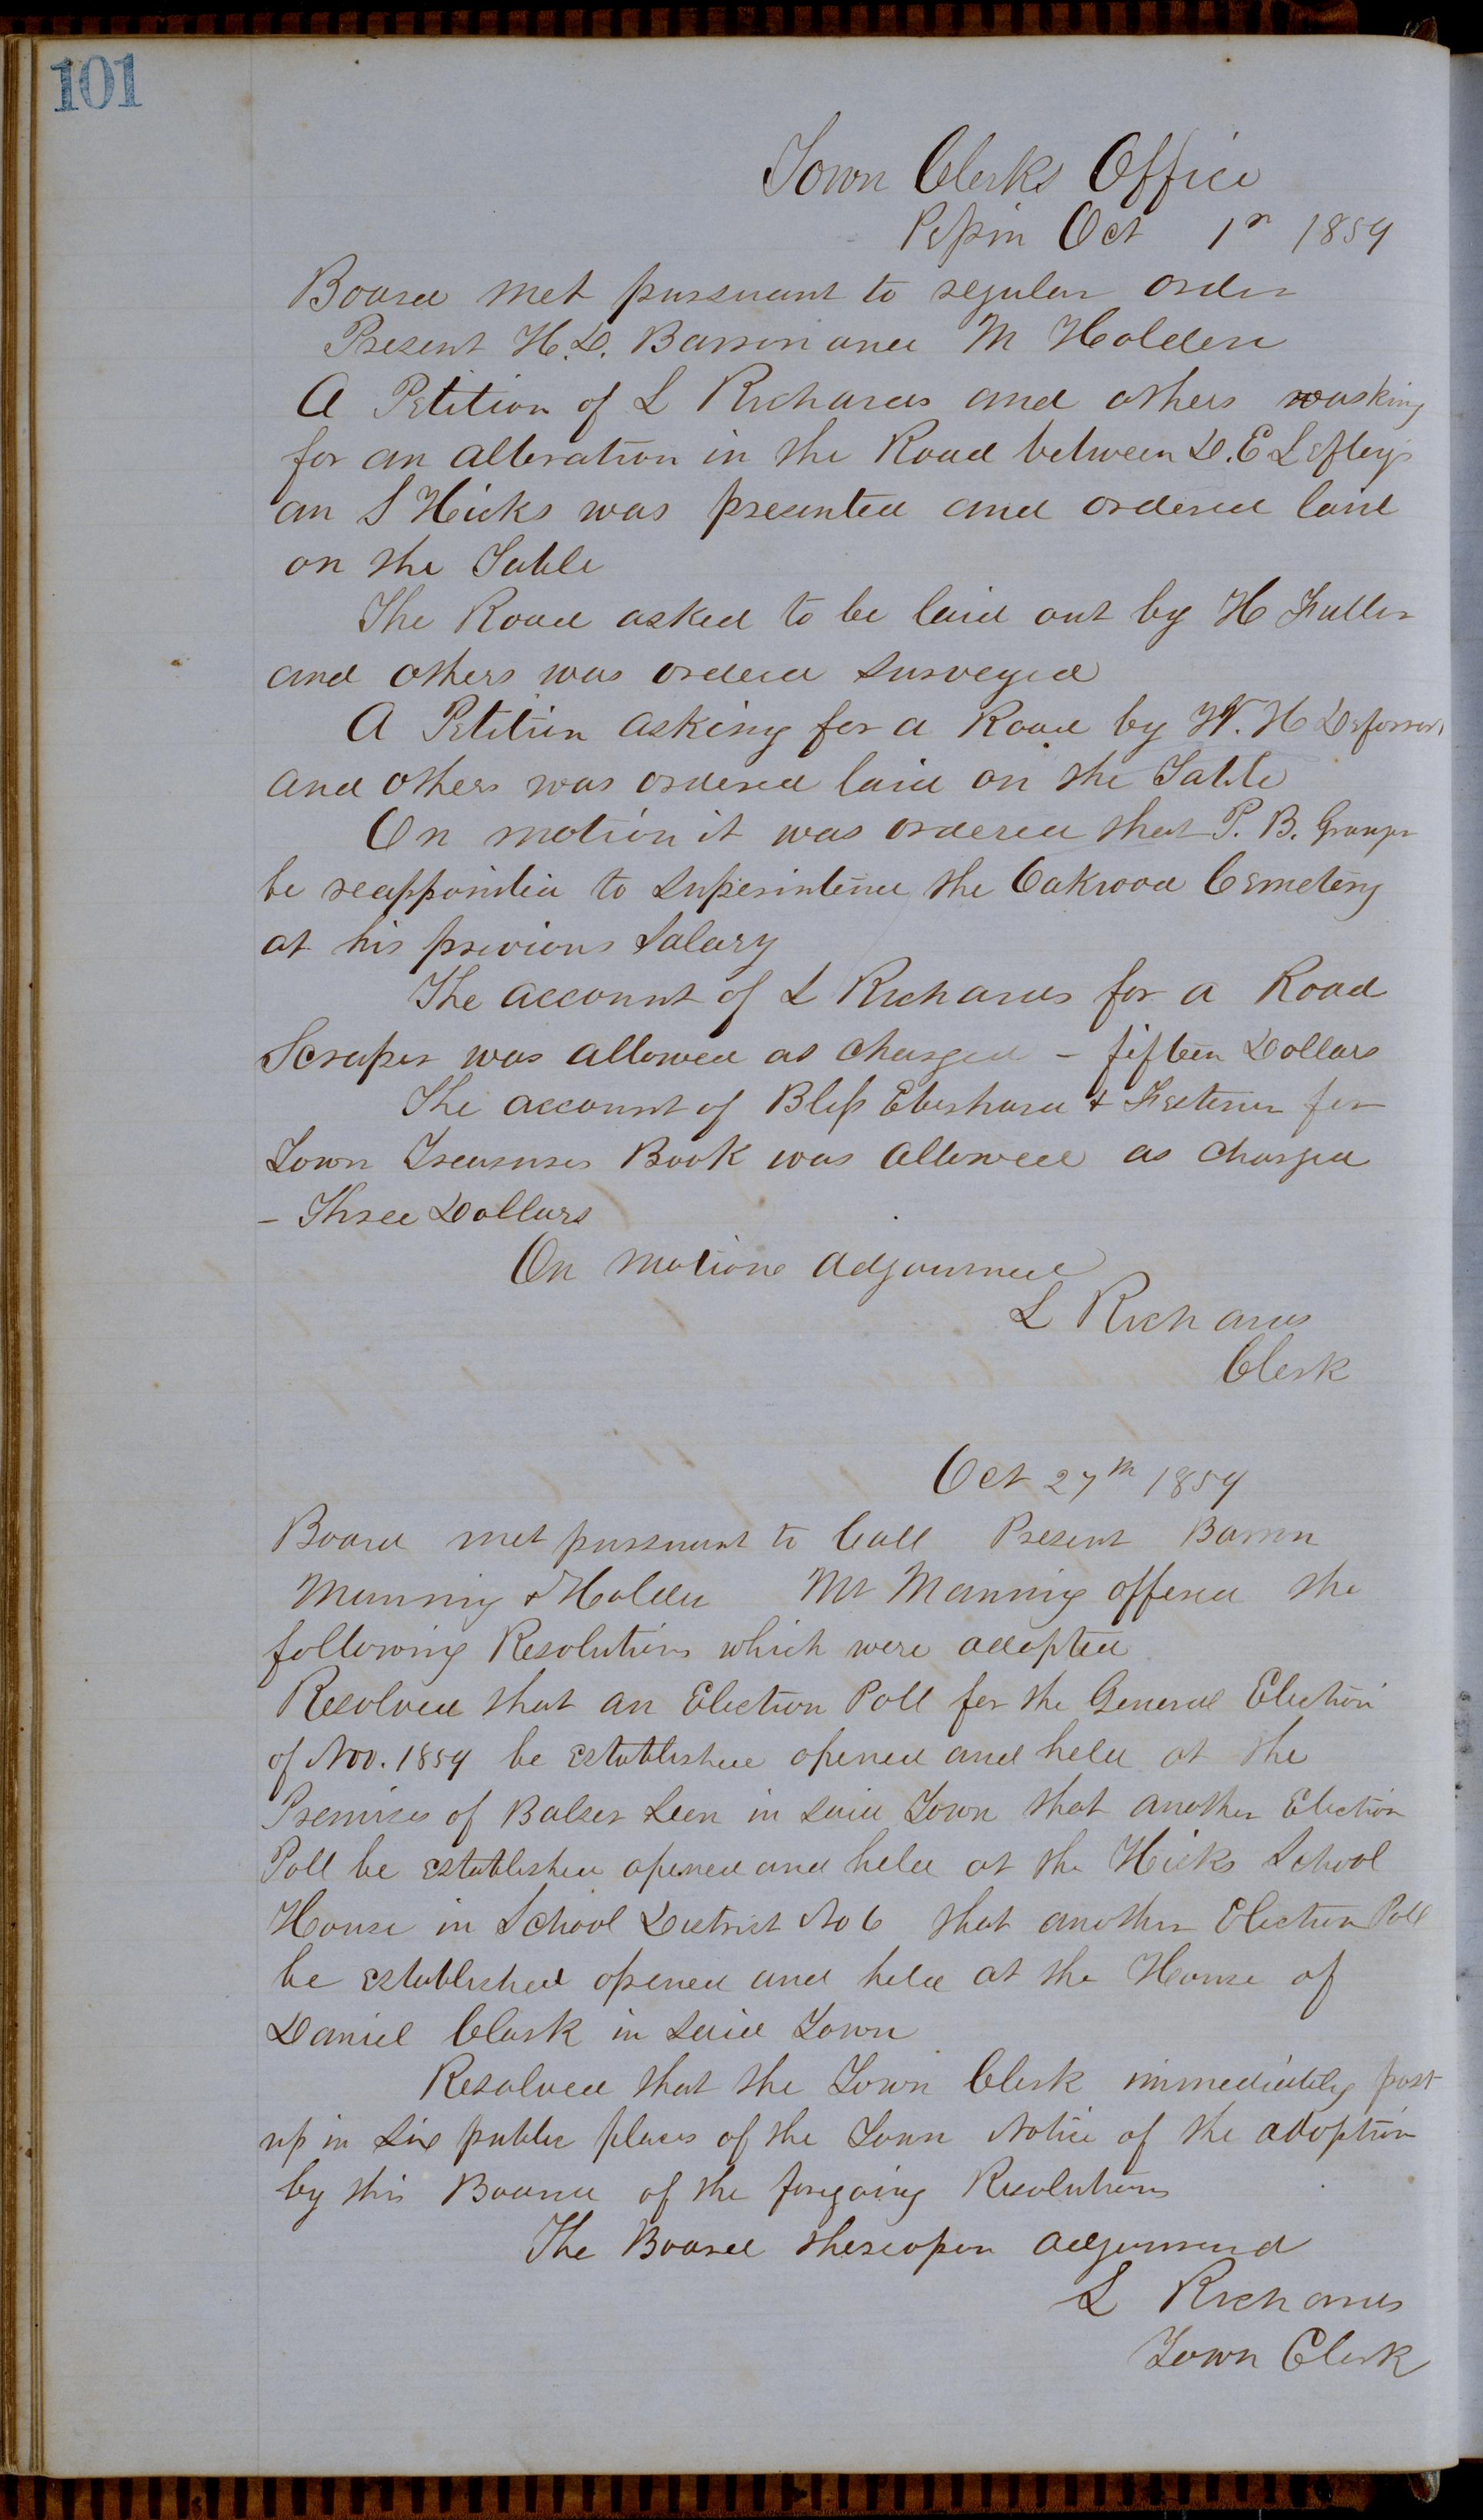 101
Town Clerks Office
Pepin Oct 1st 1859
Board met pursuant to regular order
Present H. D. Barron and M Holden
A Petition of L Richards and others asking
for an alteration in the Road between D. E Lefley's
an S Hicks was presented and ordered laid
on the Table
The Road asked to be laid out by H Fuller
and others was ordered Surveyed
A Petition asking for a Road by W. H
and others was ordered laid on the Table
On motion it was ordered that P. B. Granger
be reappointed to Superintend the Oakwood Cemetery
at his previous Salary
The account of L Richards for a Road
Scraper was allowed as charged – fifteen Dollars
The account of Bliss Eberhard & for
Town Treasurers Book was allowed as charged
– Three Dollars
On motion adjourned
L Richards
Clerk
Oct 27th 1859
Board met pursuant to Call Present Barron
Manning & Holden Mr Manning offered the
following Resolutions which were adopted
Resolved that an Election Poll for the General Election
of Nov. 1859 be established opened and held at the
Premises of Balser Seen in Said Town that another Election
Poll be established opened and held at the Hicks School
House in School District No 6 that another Election Poll
be established opened and held at the House of
Daniel Clark in Said Town
Resolved that the Town Clerk immediately post
up in Six public places of the Town Notice of the adoption
by this Board of the foregoing Resolutions
The Board thereupon adjourned
L Richards
Town Clerk